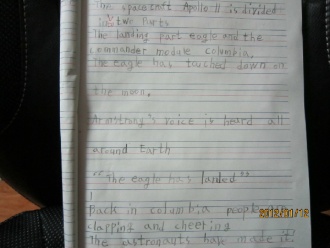 The spacecraft Apollo 11 is divided
into two parts
The landing part eagle and the
commander module columbia.
The eagle has touched down on
the moon.
Armstrong's voice is heard all
around Earth
"The eagle has landed"
Back in columbia people
clapping and cheering
The astronauts have made it.
2012/01/13